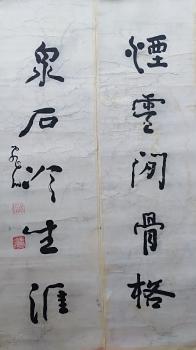 煙雲閒骨格
泉石冷生涯